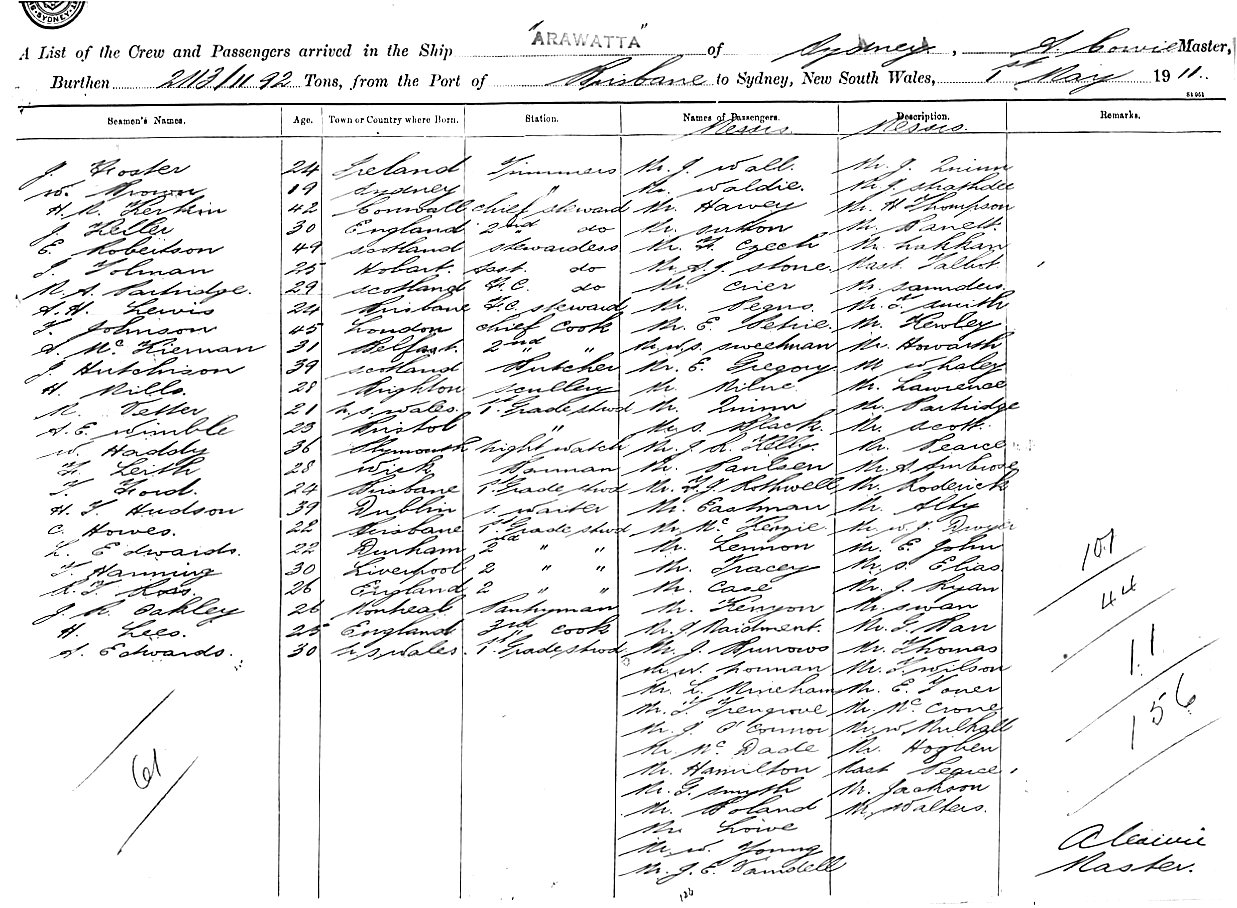 SYDNEY.
"ARAWATTA"
A List of the Crew and Passengers arrived in the Ship ARAWATTA of Sydney, A Cowie Master,
Burthen 2113/1192 Tons, from the Port of Brisbane to Sydney, New South Wales, 1st May 1911.
51951
Seamen's Names. Age. Town or Country where Born. Station. Names of Passengers. Description. Remarks.
Messrs. Messrs.
J. Foster 24 Ireland Trimmers Mr. J. Wall. Mr. J. Quinn
W. Brown 19 Sydney " Mr. Waldie. Mr. J. Strathdee
H. R. Kerkin 42 Cornwall chief steward Mr. Harvey Mr. H Thompson
J. Keller 30 England 2nd do Mr. Sutton Mr.
E. Robertson 49 Scotland stewardess Mr. Czech Mr. Lakhan
J. Tolman 25 Hobart. do Mr. A. J. Stone. Mast. Talbot.
M. A. Partridge. 29 Scotland F.C. do Mr. Crier Mr. Saunders
A. H. Lewis 24 Brisbane F.C. steward Mr. Mr. Smith
T. Johnson 45 London chief cook Mr. E. Petrie. Mr. Kewley
A. McKiernan 31 Belfast. 2nd " Mr. W. S. Sweetman Mr. Howarth
J. Hutchison 39 Scotland Butcher Mr. E. Gregory Mr. Whaley
H. Mills. 28 Brighton Scullery Mr. Milne Mr. Lawrence
R. Vetter 21 N. S. Wales. 1st Grade stwd Mr. Quinn Mr. Partridge
A. E. Wimble 23 Bristol " Mr. S. Black. Mr. Scott.
W. Haddy 36 Plymouth night watch Mr. J. R. Kelly. Mr. Pearce
F. Leith 28 Wick Mr. Paulsen Mr. A Ambrose
T. Ford. 24 Brisbane 1st Grade stwd Mr. F. J. Rothwell Mr. Roderick
H. T. Hudson 39 Dublin S. waiter Mr. Eastman Mr. Alty
C. Howes. 22 Brisbane 1st Grade stwd Mr. McKenzie Mr. W. J. Dwyer
L. Edwards. 22 Durham 2nd " " Mr. Lennon Mr. E. John
F. Hanning 30 Liverpool 2 " " Mr. Tracey Mr. S. Elias
Ross 26 England 2 " " Mr. Case Mr. J. Ryan
J. R. Oakley 26 Montreal Pantryman Mr. Kenyon Mr. Swan
H. Lees. 25 England 3rd cook Mr. J Maidment. Mr. J.
A. Edwards. 30 N. S. Wales. 1st Grade stwd Mr. J. Mr. Thomas
Mr. W. Mr. J Wilson
Mr. L. Mineham Mr. E. Toner
Mr. T. Trengrove Mr. McCrone
Mr. J. O'Connor Mr. W. Mulhall
Mr. McDade Mr. Hogben
Mr. Hamilton Mast Pearce
Mr. G. Smyth Mr. Jackson
Mr. Boland Mr. Walters.
Mr. Lowe
Mr. W. Young
Mr. J. E. Tansdell
61
101
44
11
156
A Cowie
Master.
126